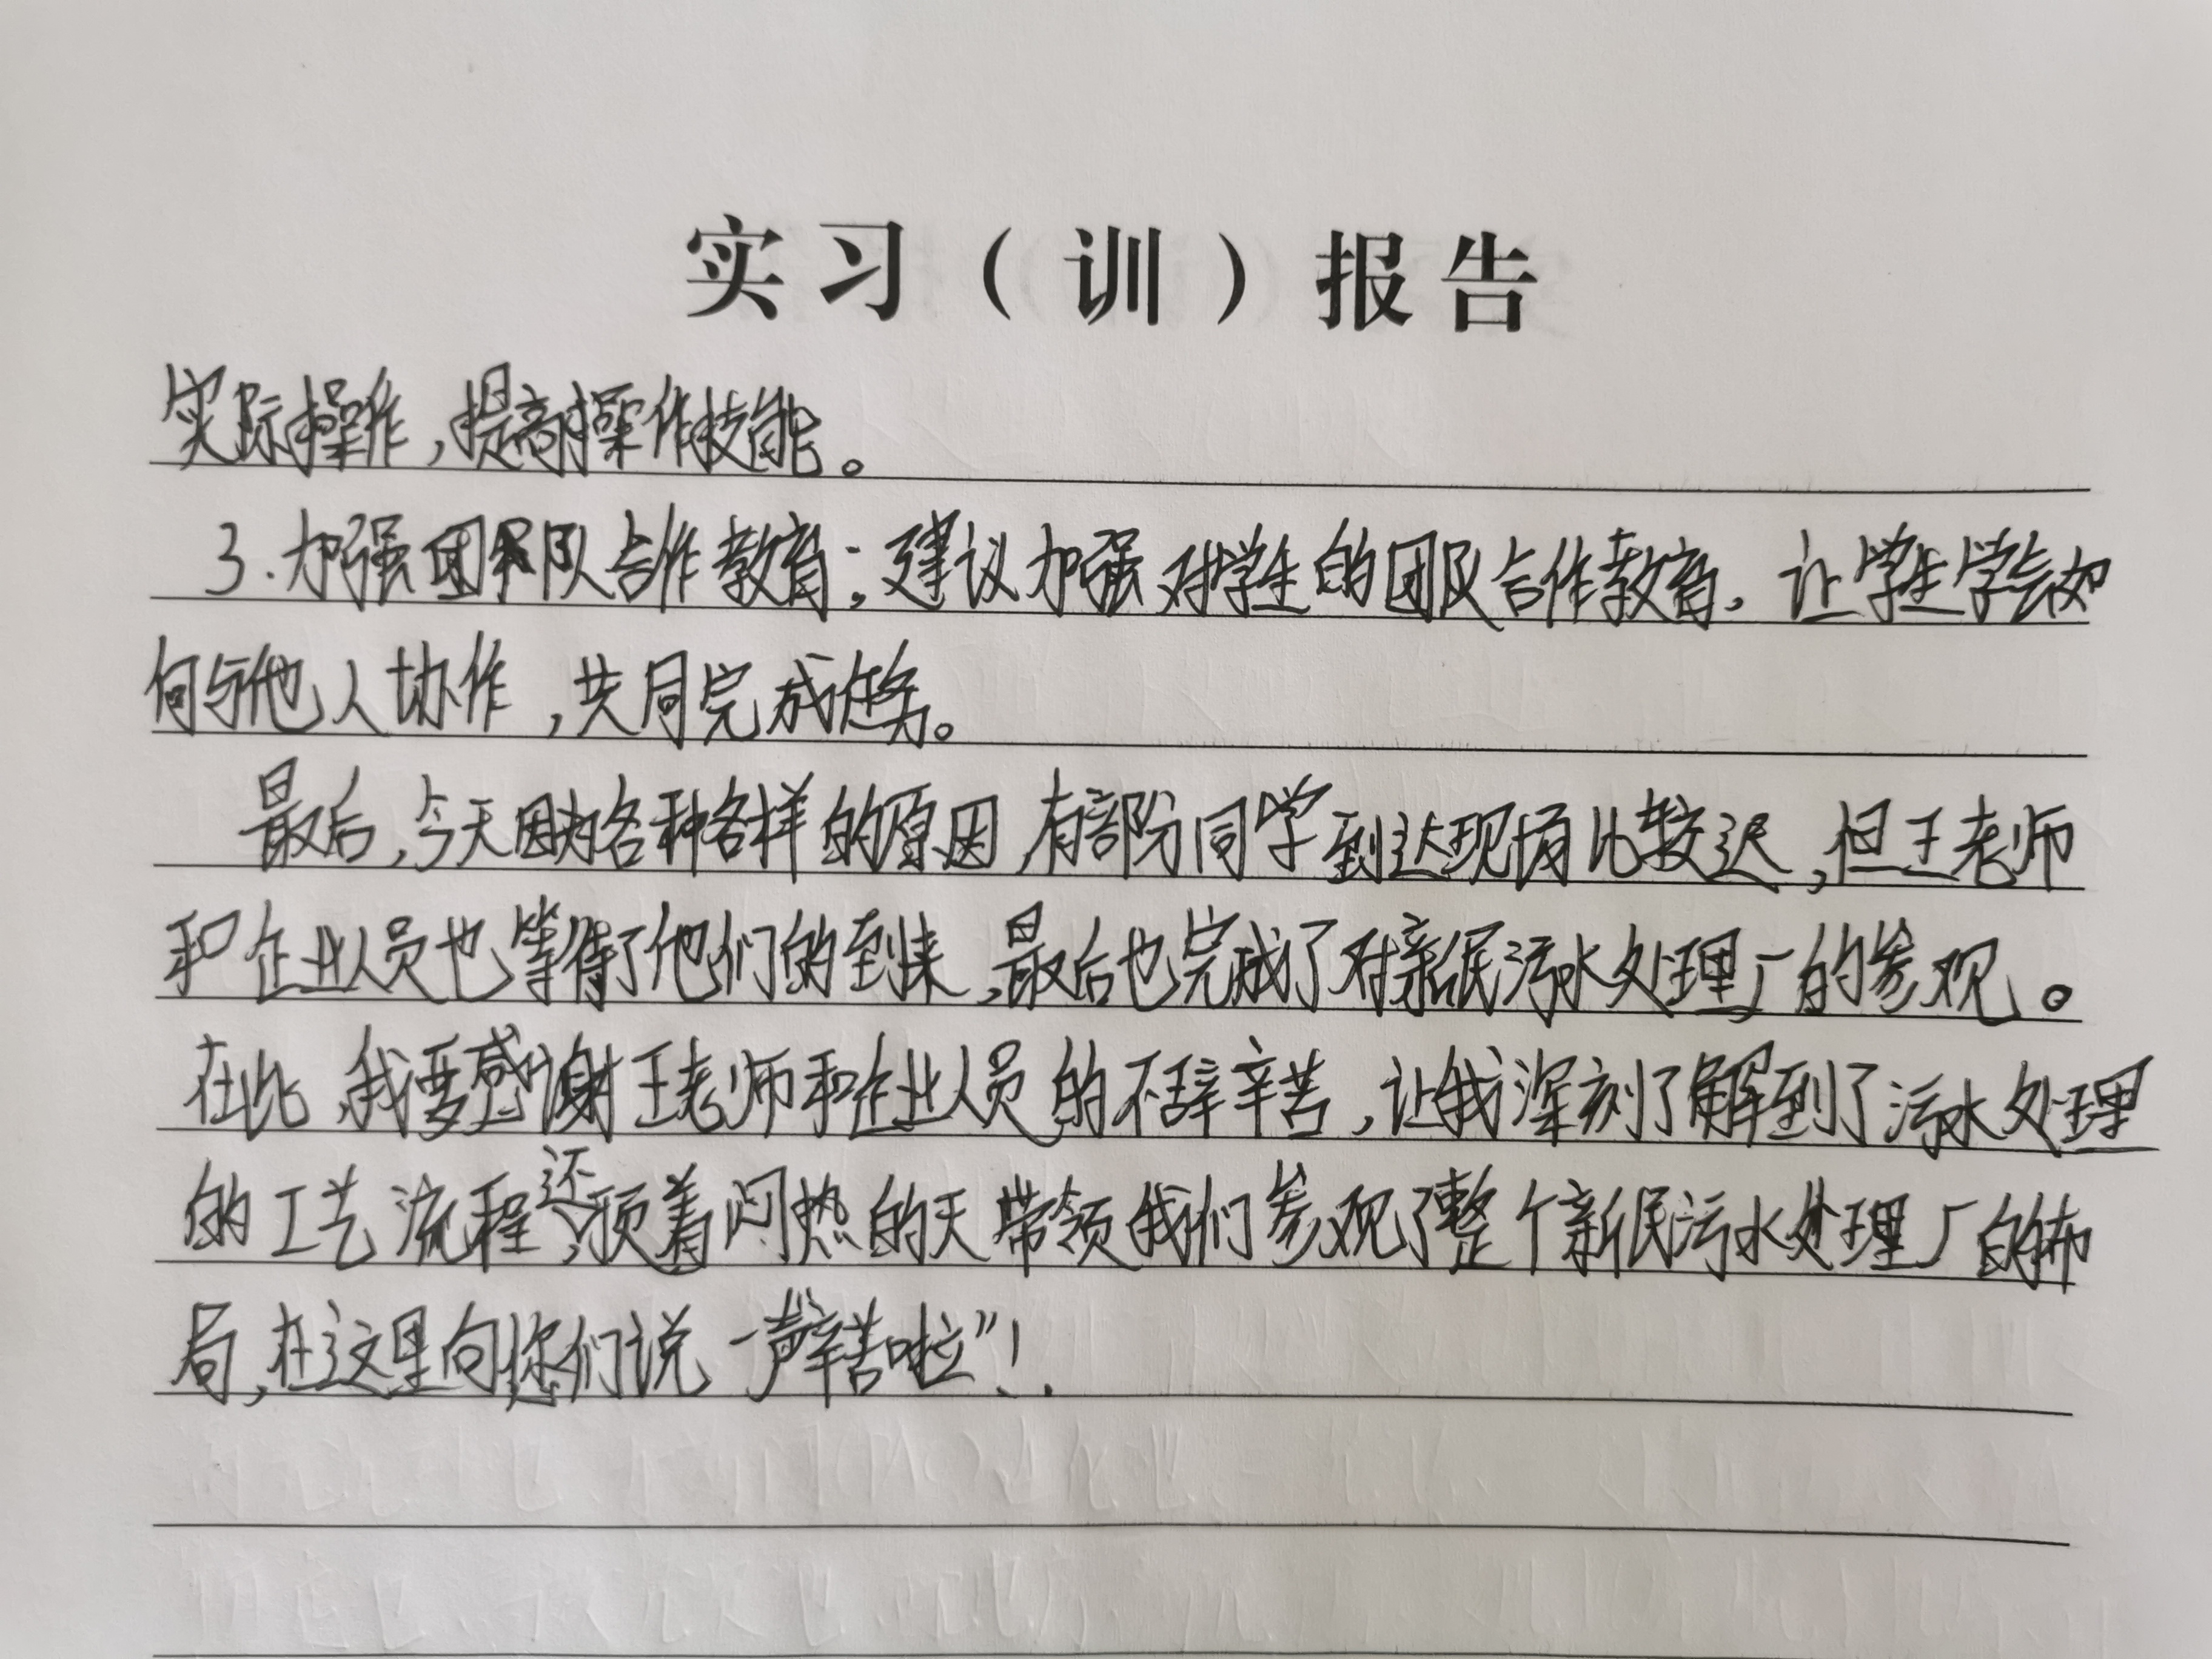 实习（训）报告
实际操作，提高操作技能。
3.加强团队合作教育：建议加强对学生的团队合作教育，让学生学会如
何与他人协作，共同完成任务。
最后，今天因为各种各样的原因，有部份同学到达现场比较迟，但王老师
和企业人员也等待了他们的到来，最后也完成了对新民污水处理厂的参观。
在此，我要感谢王老师和企业人员的不辞辛苦，让我深刻了解到了污水处理
的工艺流程，还顶着闷热的天带领我们参观了整个新民污水处理厂的布
局，在这里向你们说一声辛苦啦”！